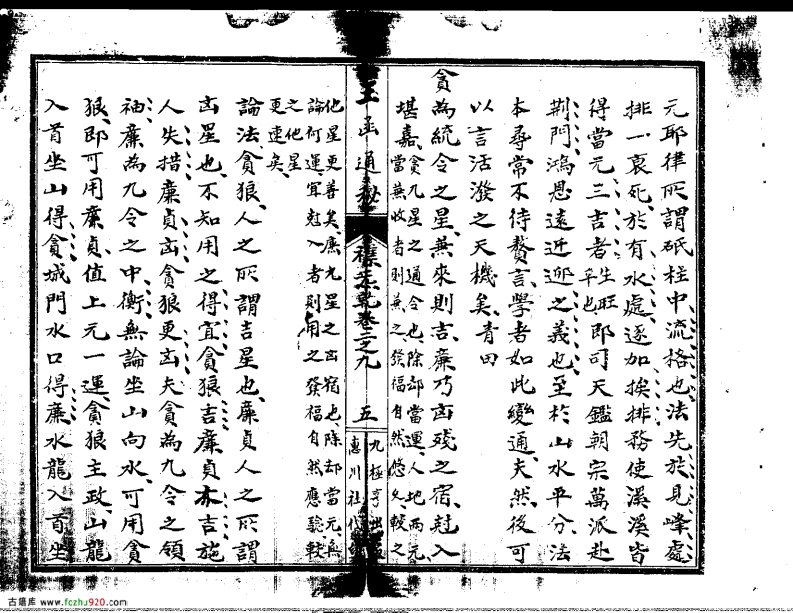 元耶律所謂砥柱中流格也法先於見峰處
排一衰死於有水處逐加挨排務使溪溪皆
得當元三吉者生旺平也即可天鑑朝宗萬派赴
荆門鴻恩遠近迎之義也至於山水平分法
本尋常不待贅言學者如此變通夫然後可
以言活潑之天機矣青田
貪為統令之星兼來則吉廉乃凶殘之宿尅入
堪嘉貪九星之通令也除卻當運人地兩元
當兼收者則兼之發福自然悠久較之
他星更善矣廉九星之凶宿也除却當元無
論何運宜尅入者則用之發福自然應驗較
之他星
更速矣
論法貪狼人之所謂吉星也廉貞人之所謂
凶星也不知用之得宜貪狼吉廉貞亦吉施
人失措廉貞凶貪狼更凶夫貪為九令之領
袖廉為九令之中衡無論坐山向水可用貪
狼即可用廉貞值上元一運貪狼主政山龍
入首坐山得貪城門水口得廉水龍入首坐
玉函通秘
卷之九
五
九極亨
惠川社代
古籍库 www.fczhu920.com